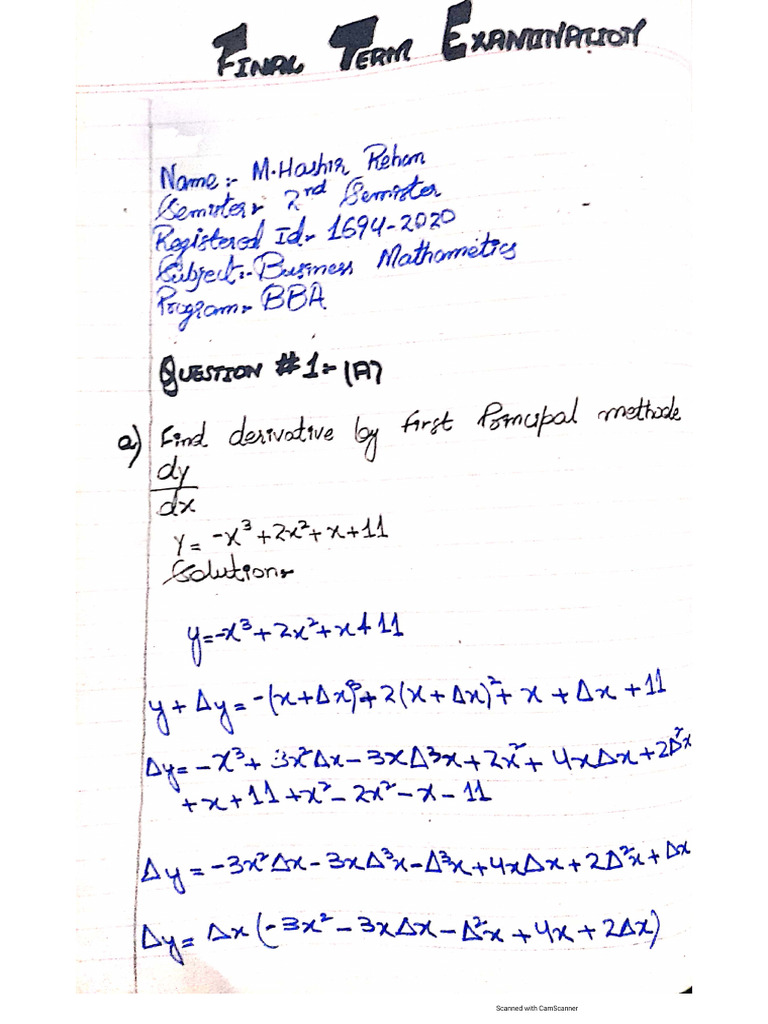 FINAL TERM EXAMINATION
Name:- M.Hashir Rehan
Semister:- 2nd Semister
Registered Id:- 1694-2020
Subject:- Business Mathametics
Program:- BBA
QUESTION #1:- (A)
a) Find derivative by first Principal methode
dy
dx
Y = -x³+2x²+x+11
Solution:-
y=-x³+2x²+x+11
y+Δy=-(x+Δx)³+2(x+Δx)²+x+Δx+11
Δy=-x³+3x²Δx-3xΔ³x+2x²+4xΔx+2Δ²x
+x+11+x²-2x²-x-11
Δy=-3x²Δx-3xΔ³x-Δ³x+4xΔx+2Δ²x+Δx
Δy=Δx(-3x²-3xΔx-Δ²x+4x+2Δx)
Scanned with CamScanner